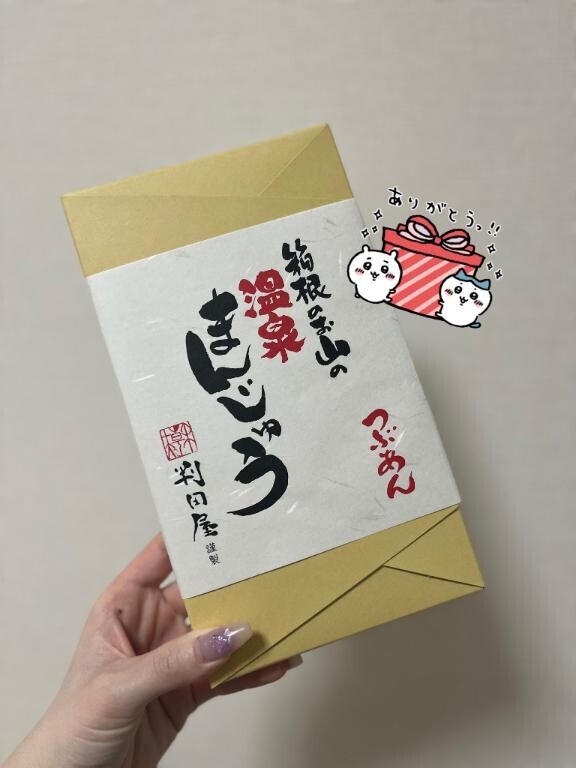 箱根のお山の
温泉
まんじゅう
つぶあん
判田屋
謹製
ありがとうっ!!